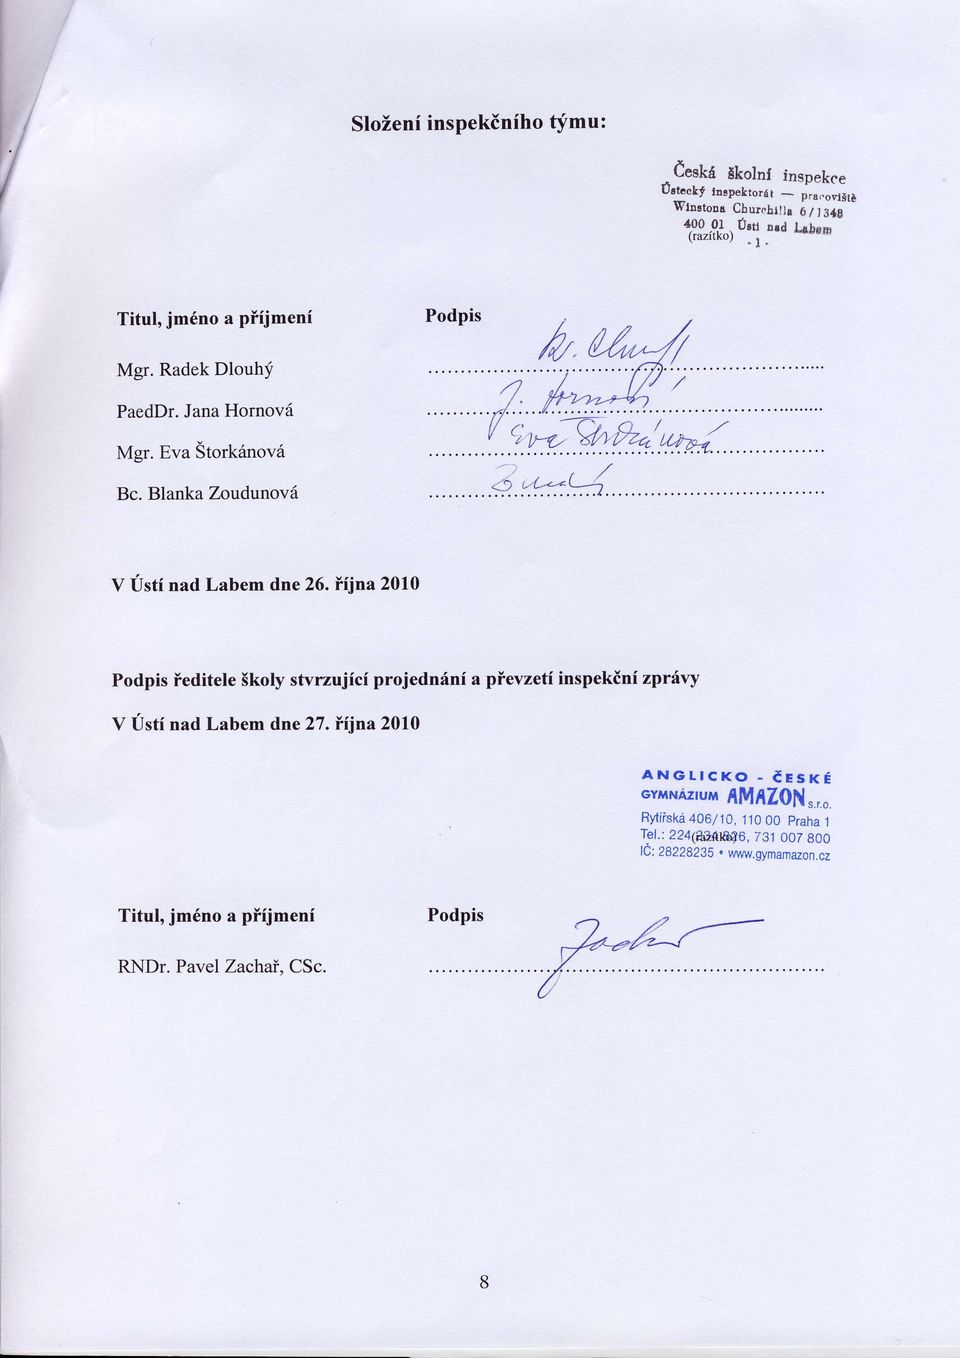 Složení inspekčního týmu:
Česká školní inspekce
Ústecký inspektorát — pracoviště
Winstona Churchilla 6/1348
400 01 Ústí nad Labem
(razítko) - 1 -
Titul, jméno a příjmení Podpis
Mgr. Radek Dlouhý
PaedDr. Jana Hornová J. Hornová
Mgr. Eva Štorkánová Eva Štorkánová
Bc. Blanka Zoudunová
V Ústí nad Labem dne 26. října 2010
Podpis ředitele školy stvrzující projednání a převzetí inspekční zprávy
V Ústí nad Labem dne 27. října 2010
ANGLICKO - ČESKÉ
GYMNÁZIUM AMAZON s.r.o.
Rytířská 406/10, 110 00 Praha 1
Tel.: 224 (razítko) 731 007 800
IČ: 28228235 • www.gymamazon.cz
Titul, jméno a příjmení Podpis
RNDr. Pavel Zachař, CSc.
8